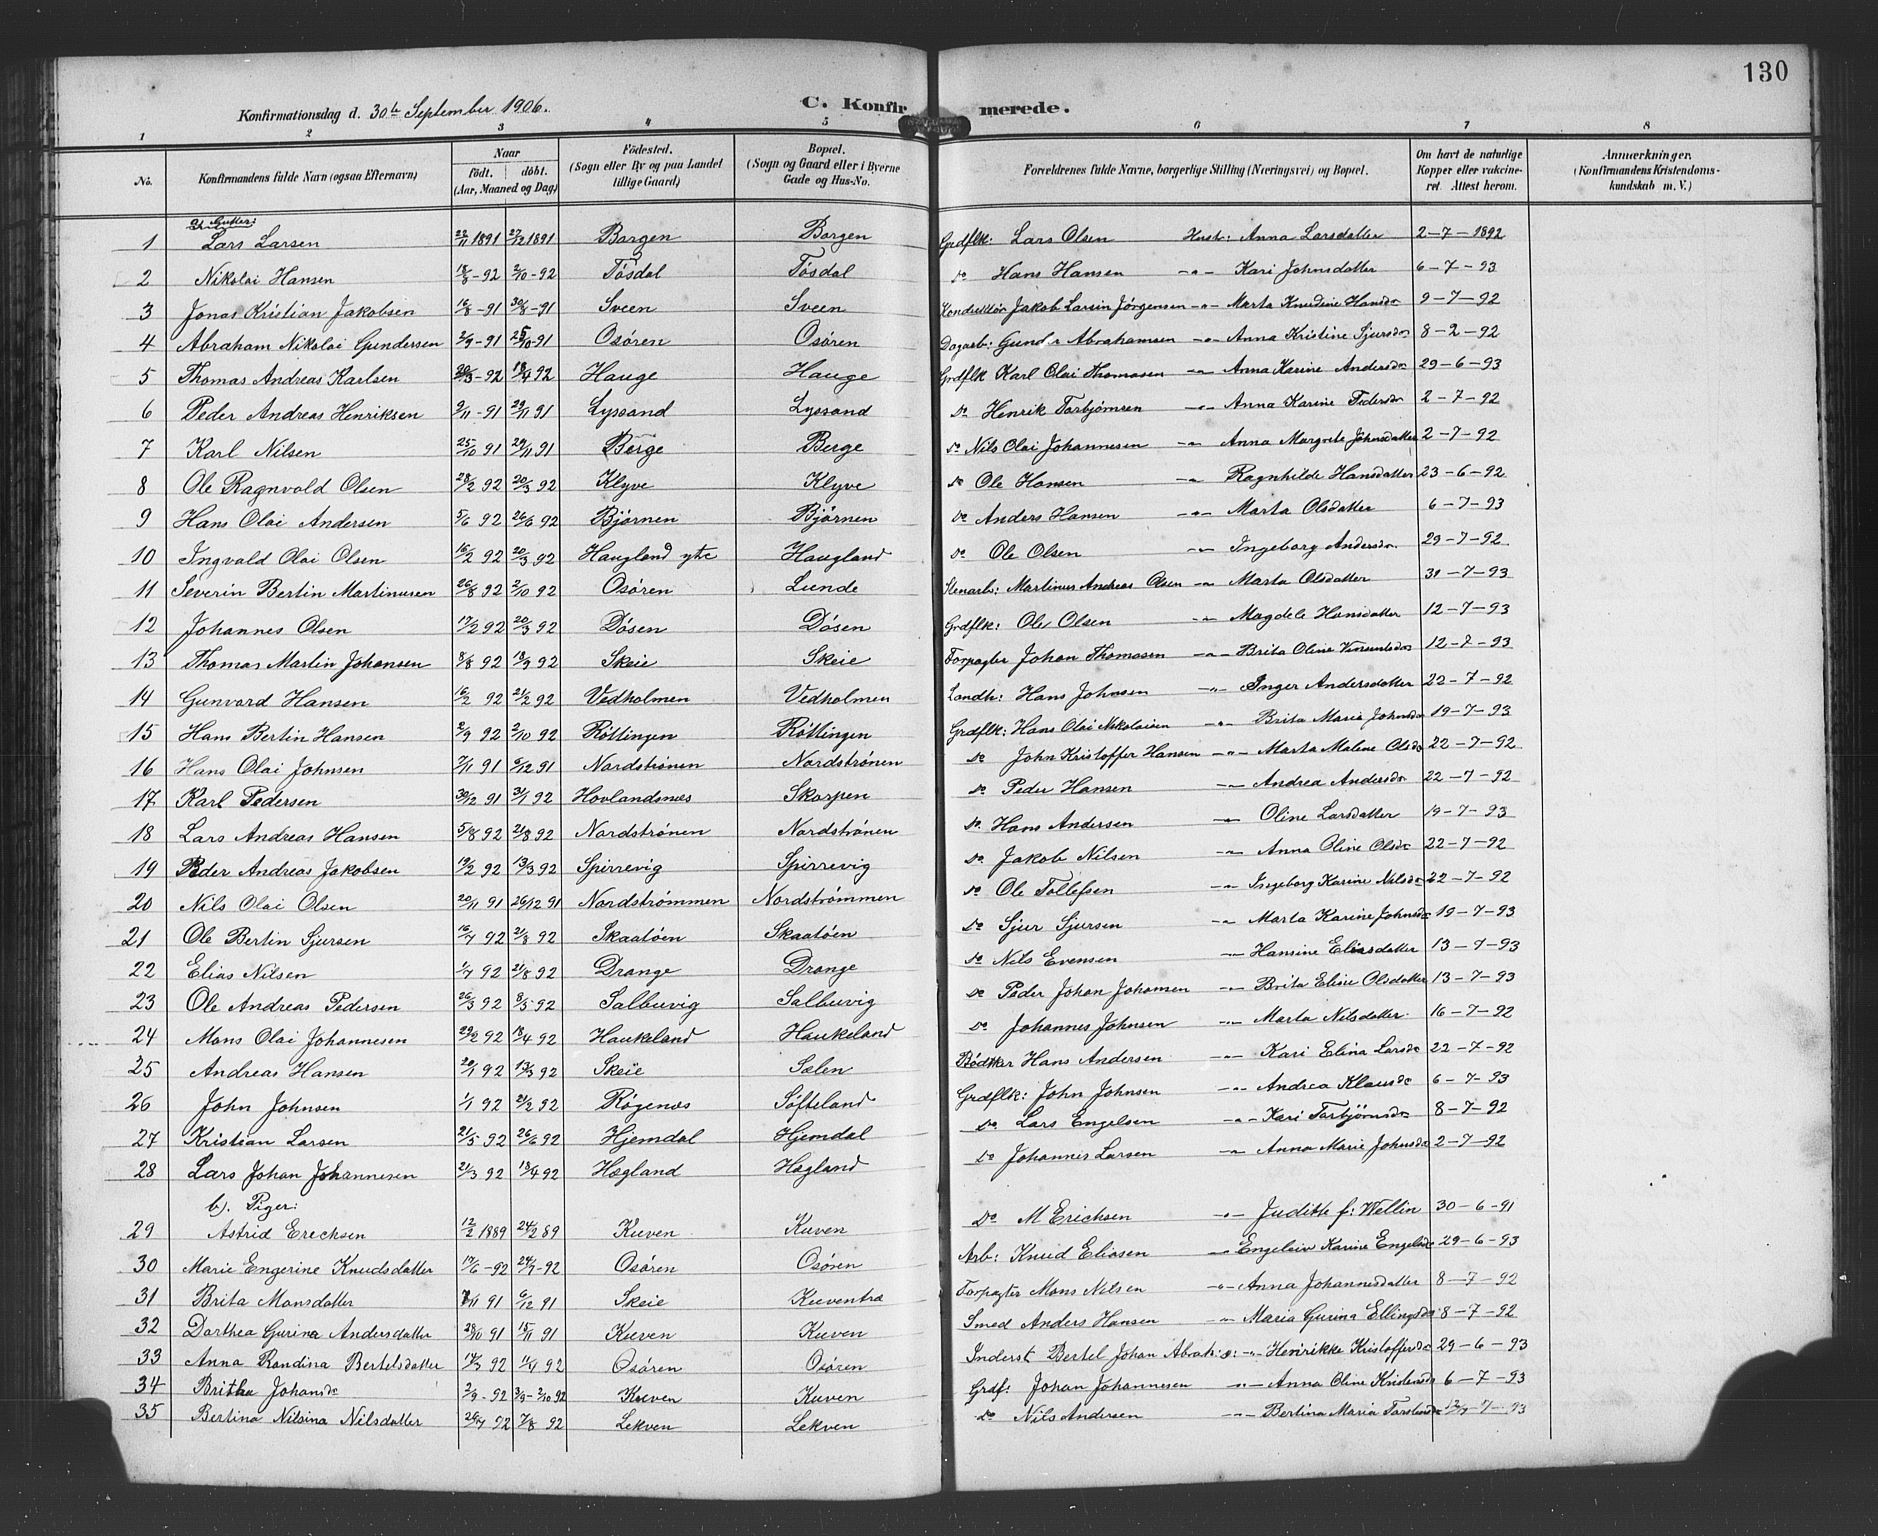 130
Konfirmationsdag d. 30te September 1906.
C. Konfirmerede.
1 2 3 4 5 6 7 8
No. Konfirmandens fulde Navn (ogsaa Efternavn) Naar født. døbt. (Aar, Maaned og Dag) Fødested. (Sogn eller By og paa Landet tillige Gaard) Bopæl. (Sogn og Gaard eller i Byerne Gade og Hus-No. Forældrenes fulde Navne, borgerlige Stilling (Næringsvei) og Bopæl. Om havt de naturlige Kopper eller vakcineret. Attest herom. Anmærkninger. (Konfirmandens Kristendomskundskab m. V.)
Gutter:
1 Lars Larsen 22/11 1891 27/12 1891 Borgen Borgen Grdflk: Lars Olsen Hust: Anna Larsdatter 2-7-1892
2 Nikolai Hansen 18/8-92 2/10-92 Tøsdal Tøsdal do Hans Hansen -"- Kari Johnsdatter 6-7-93
3 Jonas Kristian Jakobsen 16/8-91 30/8-91 Sveen Sveen Konduktør Jakob Larsin Jørgensen -"- Marta Knudine Hansdr 9-7-92
4 Abraham Nikolai Gundersen 2/9-91 25/10-91 Osøren Osøren Dagarb: Gunder Abrahamsen -"- Anna Kristine Sjursdr 8-2-92
5 Thomas Andreas Karlsen 20/3-92 18/4 92 Hauge Hauge Grdflk Karl Olai Thomasen -"- Anna Karine Andersdr 29-6-93
6 Peder Andreas Henriksen 9/11-91 29/11 91 Lyssand Lyssand do Henrik Torbjørnsen -"- Anna Karine Pedersdr 2-7-92
7 Karl Nilsen 25/10 91 29/11 91 Berge Berge do Nils Olai Johannesen -"- Anna Margrete Johnsdatter 2-7-92
8 Ole Ragnvald Olsen 28/2 92 20/3 92 Klyve Klyve do Ole Hansen -"- Ragnhilde Hansdatter 23-6-92
9 Hans Olai Andersen 5/6 92 26/6 92 Bjørnen Bjørnen do Anders Hansen -"- Marta Olsdatter 6-7-93
10 Ingvald Olai Olsen 16/2 92 20/3 92 Haugland ytre Haugland do Ole Olsen -"- Ingeborg Andersdr. 29-7-92
11 Severin Bertin Martinusen 26/8 92 2/10 92 Osøren Lunde Stenarb: Martinus Andreas Olsen -"- Marta Olsdatter 31-7-93
12 Johannes Olsen 17/2 92 20/3 92 Døsen Døsen Grdflk: Ole Olsen -"- Magdele Hansdatter 12-7-93
13 Thomas Martin Johansen 8/8 92 18/9 92 Skeie Skeie Forpagter Johan Thomasen -"- Brita Oline Vinsentsdr 12-7-93
14 Gunvard Hansen 16/2 92 21/2 92 Vedholmen Vedholmen Landh: Hans Johnsen -"- Inger Andersdatter 22-7-92
15 Hans Bertin Hansen 2/9 92 2/10 92 Røttingen Røttingen Grdflk: Hans Olai Nikolaisen -"- Brita Maria Johnsdr 19-7-93
16 Hans Olai Johnsen 7/11 91 6/12 91 Nordstrønen Nordstrønen do John Kristoffer Hansen -"- Marta Malene Olsdr 22-7-92
17 Karl Pedersen 30/12 91 31/1 92 Hovlandsnæs Skorpen do Peder Hansen -"- Andrea Andersdr 22-7-92
18 Lars Andreas Hansen 5/8 92 21/8 92 Nordstrønen Nordstrønen do. Hans Andersen -"- Oline Larsdatter 19-7-93
19 Peder Andreas Jakobsen 19/2 92 13/3 92 Spirrevig Spirrevig do Jakob Nilsen -"- Anna Oline Olsdr 22-7-92
20 Nils Olai Olsen 20/11 91 26/12 91 Nordstrømmen Nordstrømmen do Ole Tollefsen -"- Ingeborg Karine Nilsdr 22-7-92
21 Ole Bertin Sjursen 16/7 92 21/8 92 Skaatøen Skaatøen do Sjur Sjursen -"- Marta Karine Johnsdr 19-7-93
22 Elias Nilsen 1/7 92 21/8 92 Drange Drange do Nils Evensen -"- Hansine Eliasdatter 13-7-93
23 Ole Andreas Pedersen 26/3 92 8/5 92 Salbuvig Salbuvig do Peder Johan Johansen -"- Brita Elise Olsdatter 13-7-93
24 Mons Olai Johannesen 29/2 92 18/4 92 Haukeland Haukeland do Johannes Johnsen -"- Marta Nilsdatter. 16-7-92
25 Andreas Hansen 20/1 92 13/3 92 Skeie Salen Bødtker Hans Andersen -"- Kari Elina Larsdr 22-7-92
26 John Johnsen 1/1 92 21/2 92 Røgenæs Søfteland Grdflk: John Johnsen -"- Andrea Klausdr 6-7-93
27 Kristian Larsen 21/5 92 26/6 92 Hjemdal Hjemdal do Lars Engelsen -"- Kari Torbjørnsdr 8-7-92
28 Lars Johan Johannesen 21/3 92 18/4 92 Hægland Hægland do Johannes Larsen -"- Anna Marie Johnsdr 2-7-92
b). Piger:
29 Astrid Erechsen 12/2 1889 24/2 89 Kuven Kuven do M Erichsen -"- Judithe f: Wellin 30-6-91
30 Marie Engerine Knudsdatter 17/6-92 24/7-92 Osøren Osøren Arb: Knud Eliasen -"- Karine Engelsdr 29-6-93
31 Brita Monsdatter 91 6/12 91 Skeie Kuventræ Forpagter Mons Nilsen -"- Anna Johannesdatter 8-7-92
32 Dorthea Gurina Andersdatter 28/10 91 15/11 91 Kuven Kuven Smed Anders Hansen -"- Maria Gurina Ellingsdr 8-7-92
33 Anna Randina Bertelsdatter 14/3 92 92 Osøren Osøren Inderst Bertel Johan -"- Henrikke Kristoffersdr 29-6-93
34 Britha Johansdr 2/9-92 2/10 92 Kuven Kuven Grdf: Johan Johannesen -"- Anna Oline Kristensdr 6-7-93
35 Bertina Nilsina Nilsdatter 26/7 92 7/8 92 Lekven Lekven do Nils Andersen -"- Bertina Maria Torstensdr 7-93